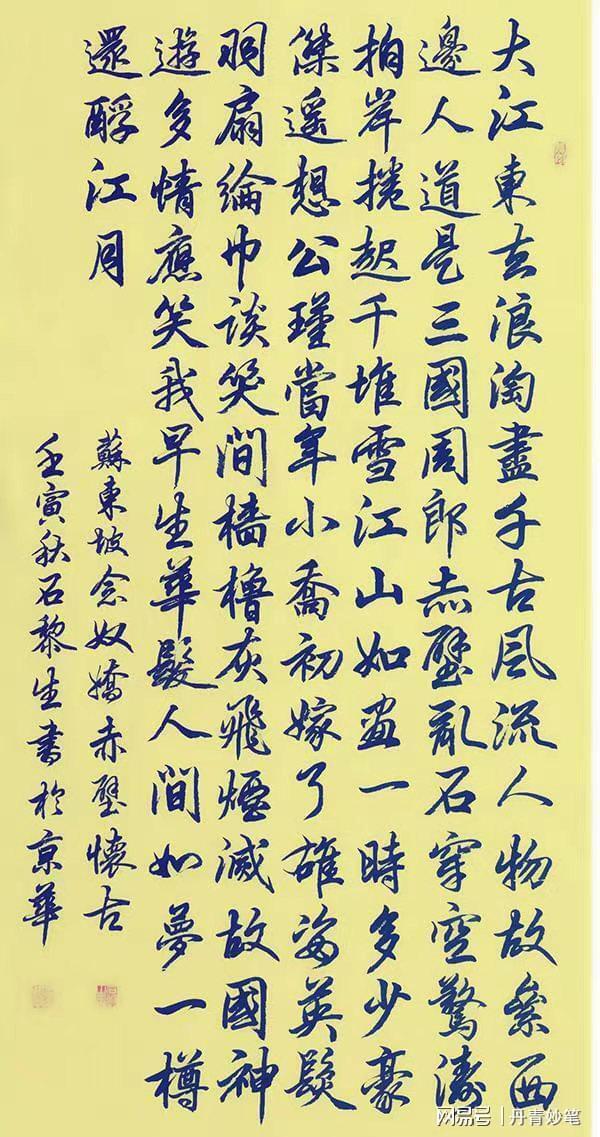 大江東去浪淘盡千古風流人物故壘西
邊人道是三國周郎赤壁亂石穿空驚濤
拍岸捲起千堆雪江山如畫一時多少豪
傑遥想公瑾當年小喬初嫁了雄姿英髮
羽扇綸巾談笑間檣櫓灰飛煙滅故國神
遊多情應笑我早生華髮人間如夢一樽
還酹江月
蘇東坡念奴嬌赤壁懷古
壬寅秋石黎生書於京華
网易号 | 丹青妙笔